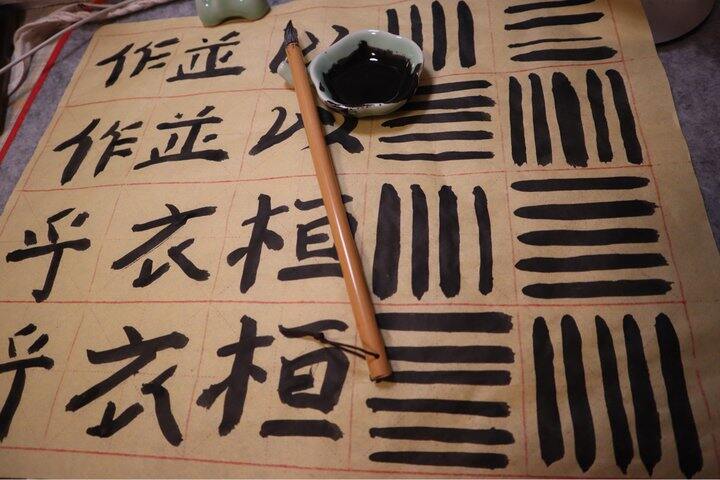 作並以
作並以
乎衣桓
乎衣桓